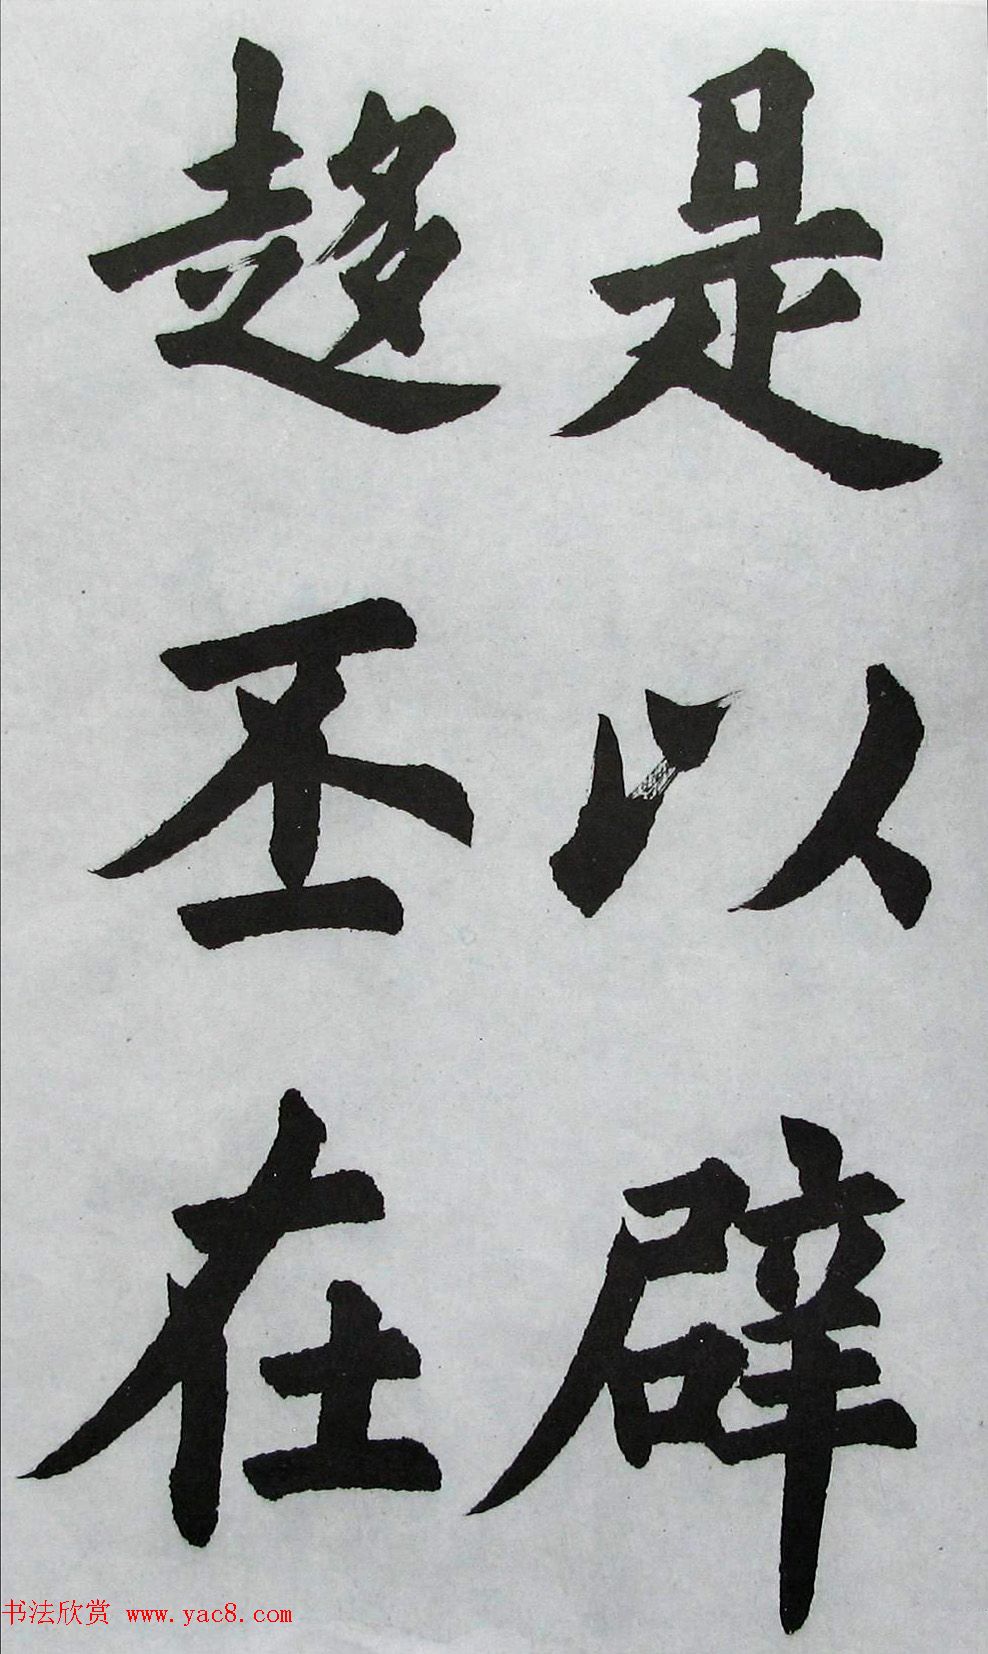 是以辟
趍丕在
书法欣赏 www.yac8.com